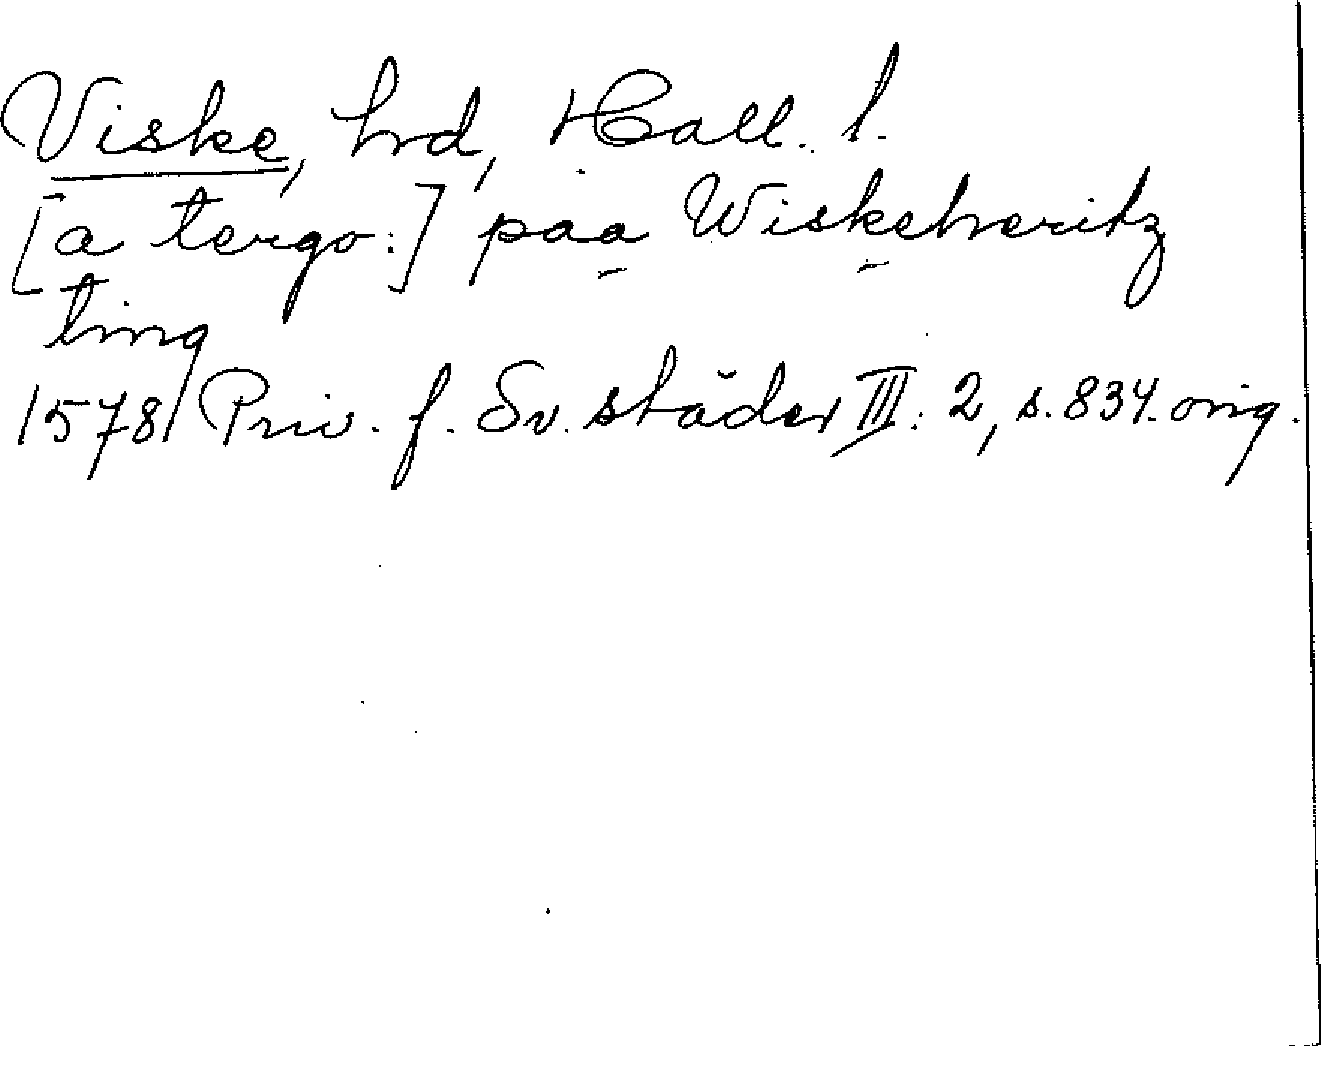 Viske, hrd, Hall. l.
[a tergo:] paa Wiskeheritz
ting
1578 Priv. f. Sv. städer III: 2, s. 834. orig.